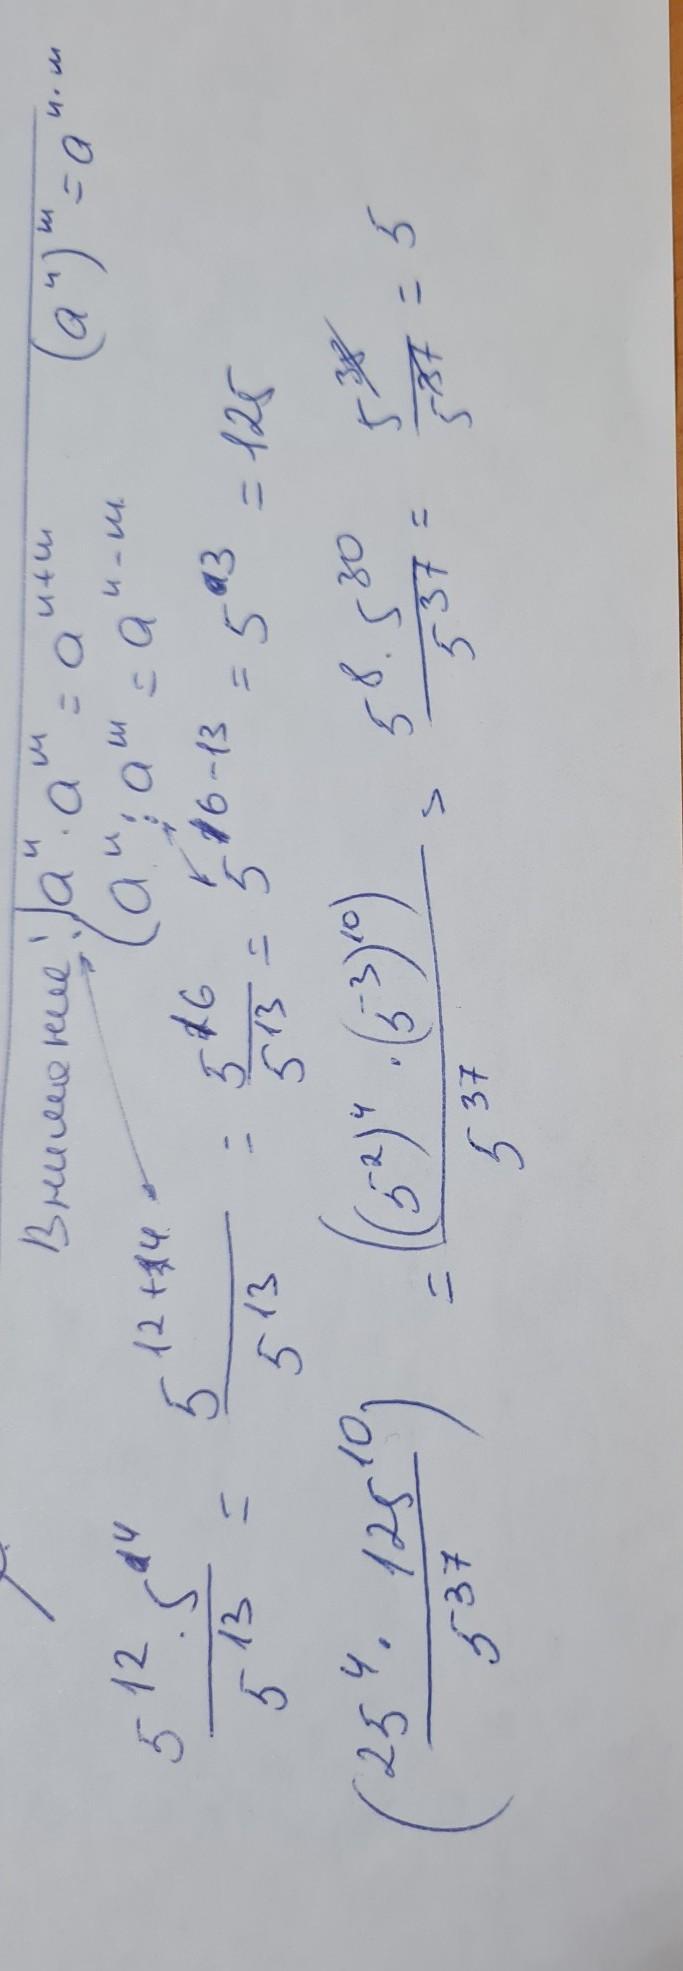 Внимание! aⁿ · aᵐ = aⁿ⁺ᵐ (aⁿ)ᵐ = aⁿ·ᵐ
(aⁿ : aᵐ = aⁿ⁻ᵐ
5¹² · 5⁴ / 5¹³ = 5¹²⁺⁴ / 5¹³ = 5¹⁶ / 5¹³ = 5¹⁶⁻¹³ = 5³ = 125
(25⁴ · 125¹⁰ / 5³⁷) = ((5²)⁴ · (5⁻³)¹⁰) / 5³⁷ > 5⁸ · 5³⁰ / 5³⁷ = 5³⁸ / 5³⁷ = 5